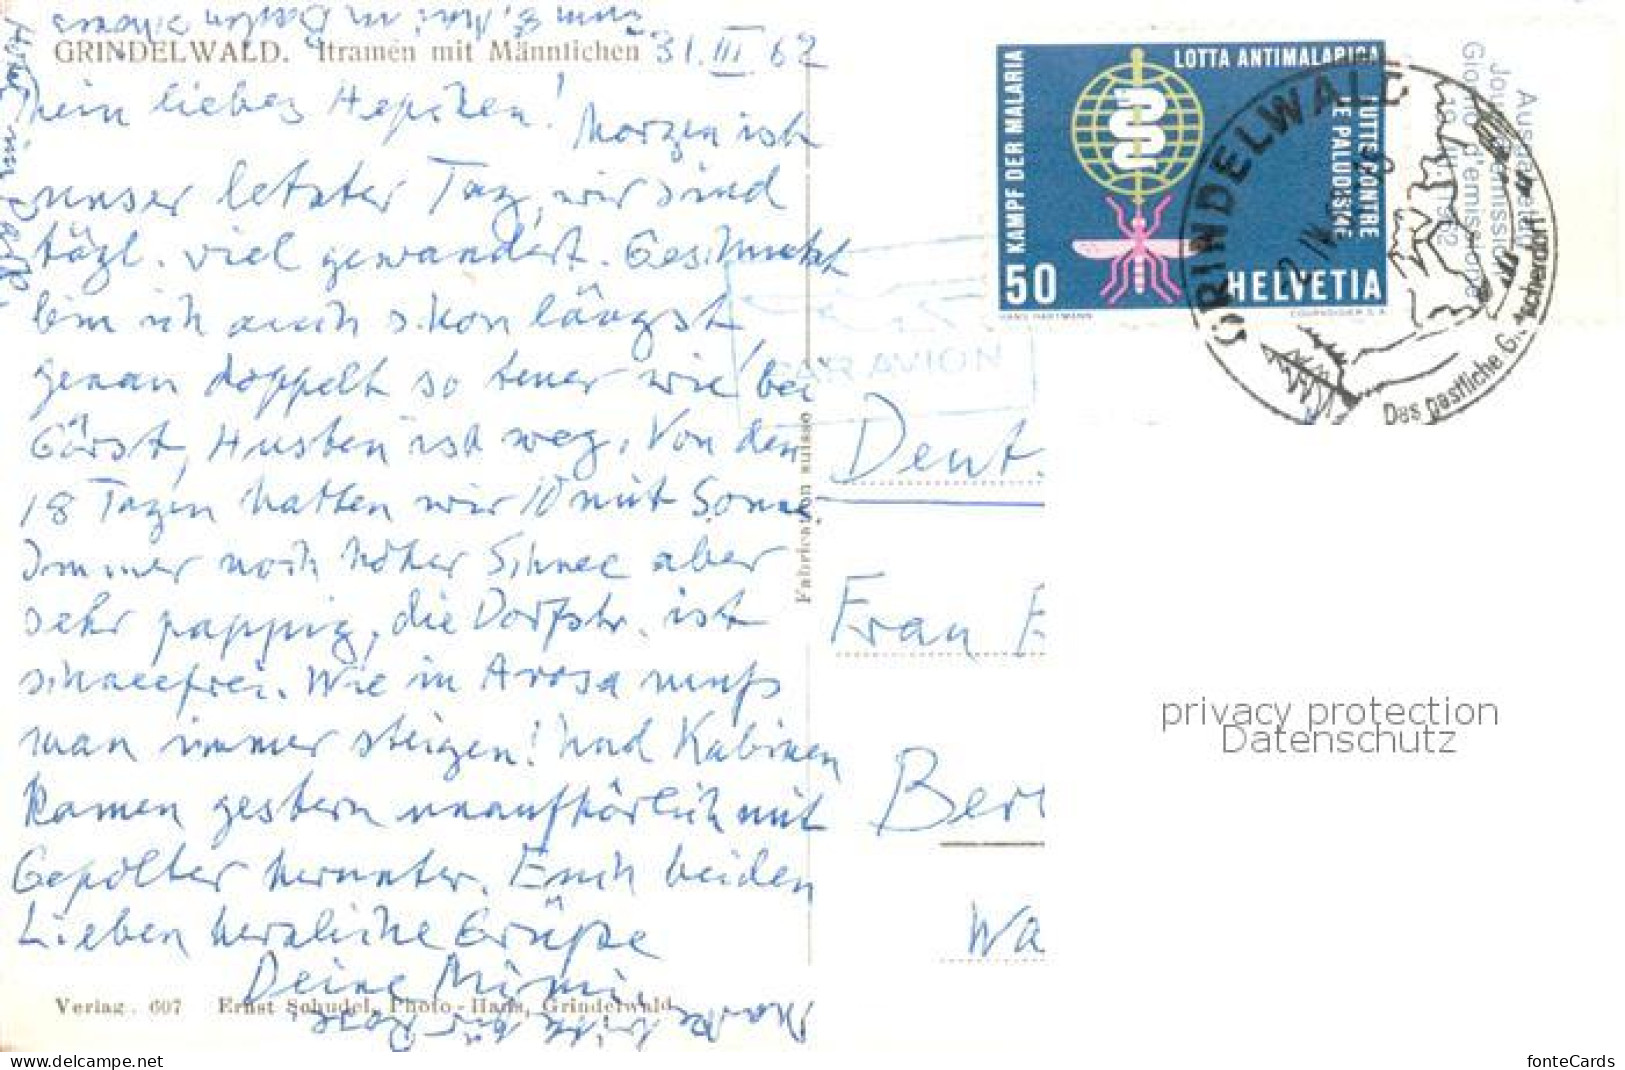 GRINDELWALD. Itramen mit Männlichen 31. III. 62
Mein liebes Hepchen! Morgen ist
unser letzter Tag, wir sind
tägl. viel gewandert. Geschnackt
bin ich auch schon längst
genau doppelt so teuer wie bei
Gerst, Husten ist weg. Von den
18 Tagen hatten wir 10 mit Sonne
Immer noch hoher Schnee aber
sehr pappig, die Dorfstr. ist
schneefrei. Wie in Arosa muß
man immer steigen! Und Kabinen
kamen gestern unaufhörlich mit
Gepolter herunter. Euch beiden
Lieben herzliche Grüße
Deine Mimi
Verlag. 607 Ernst Schudel, Photo-Haus, Grindelwald
Fabrication suisse
KAMPF DER MALARIA
LOTTA ANTIMALARICA
LUTTE CONTRE
LE PALUDISME
50 HELVETIA
HANS HARTMANN COURVOISIER S.A.
GRINDELWALD
Das gastliche Gletscherdorf
Ausgabetag
Jour d'émission
Giorno d'emissione
19. III. 1962
PAR AVION
Deut.
Frau
Ber
Wa
privacy protection
Datenschutz
fonteCards